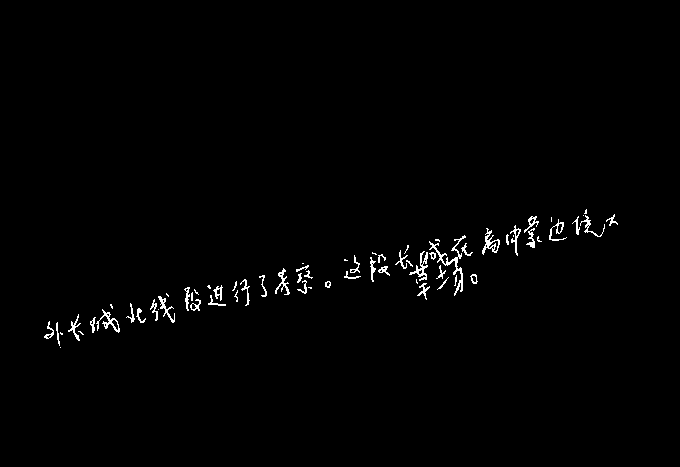 外长城北线段进行了考察。这段长城在离中蒙边境大
草场。